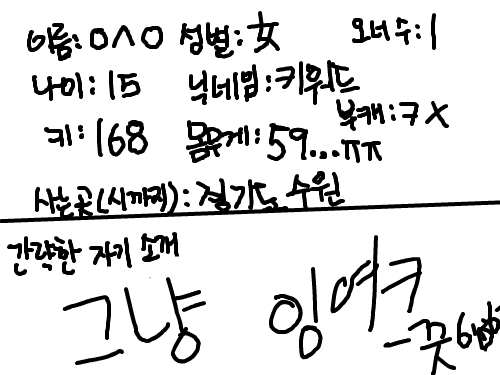 이름:ㅇㅅㅇ 성별:女 오너수:1
나이:15 닉네임:키워드
부캐:ㅋX
키:168 몸무게:59...ㅠㅠ
사는곳(시까지):경기도 수원
간략한 자기 소개
그냥 잉여ㅋ
-끗